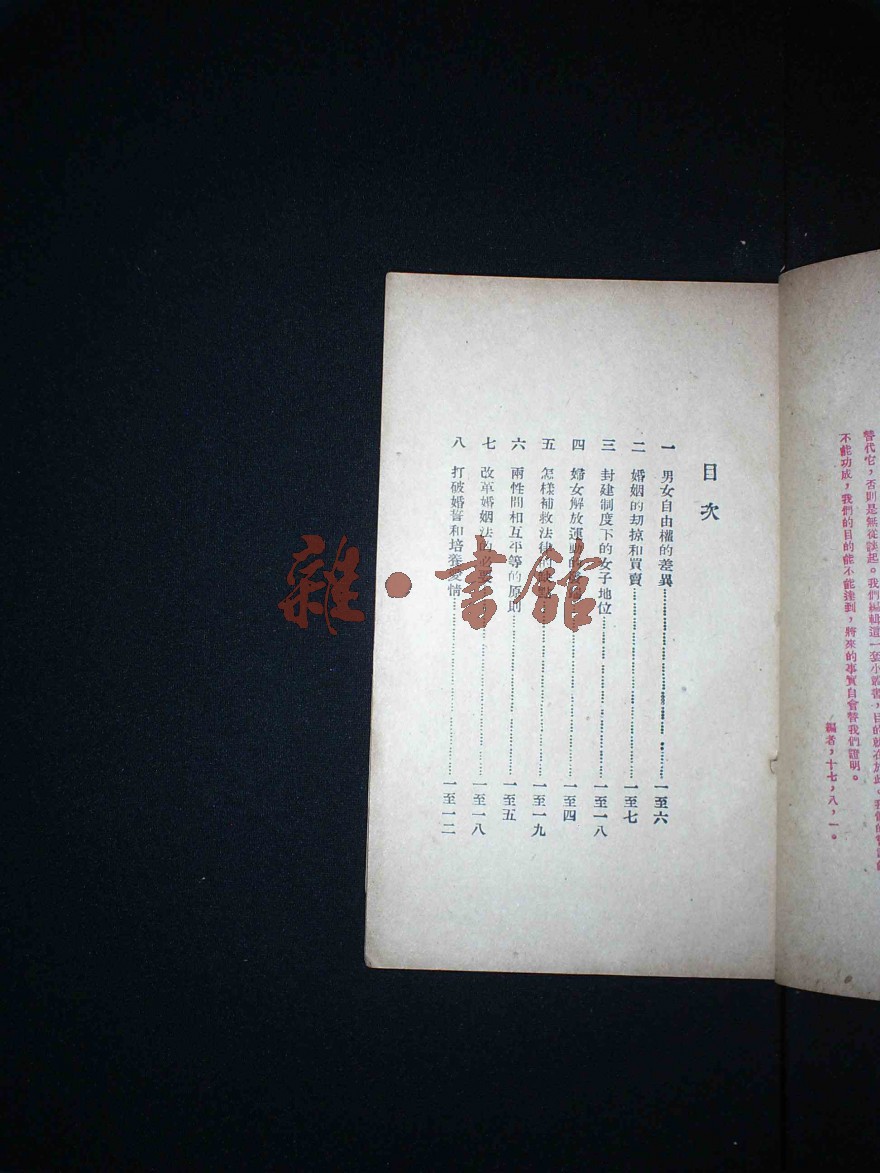 替代它，否則是無從談起。我們編輯這一套小叢書，目的就在於此。我們的
不能功成，我們的目的能不能達到，將來的事實自會替我們證明。
編者，十七，八，一。
目次
一 男女自由權的差異 一至六
二 婚姻的刧掠和買賣 一至七
三 封建制度下的女子地位 一至一八
四 婦女解放運動的 一至四
五 怎樣補救法律的缺點 一至一九
六 兩性間相互平等的原則 一至五
七 改革婚姻法的必要 一至一八
八 打破婚誓和培養愛情 一至一二
雜·書館